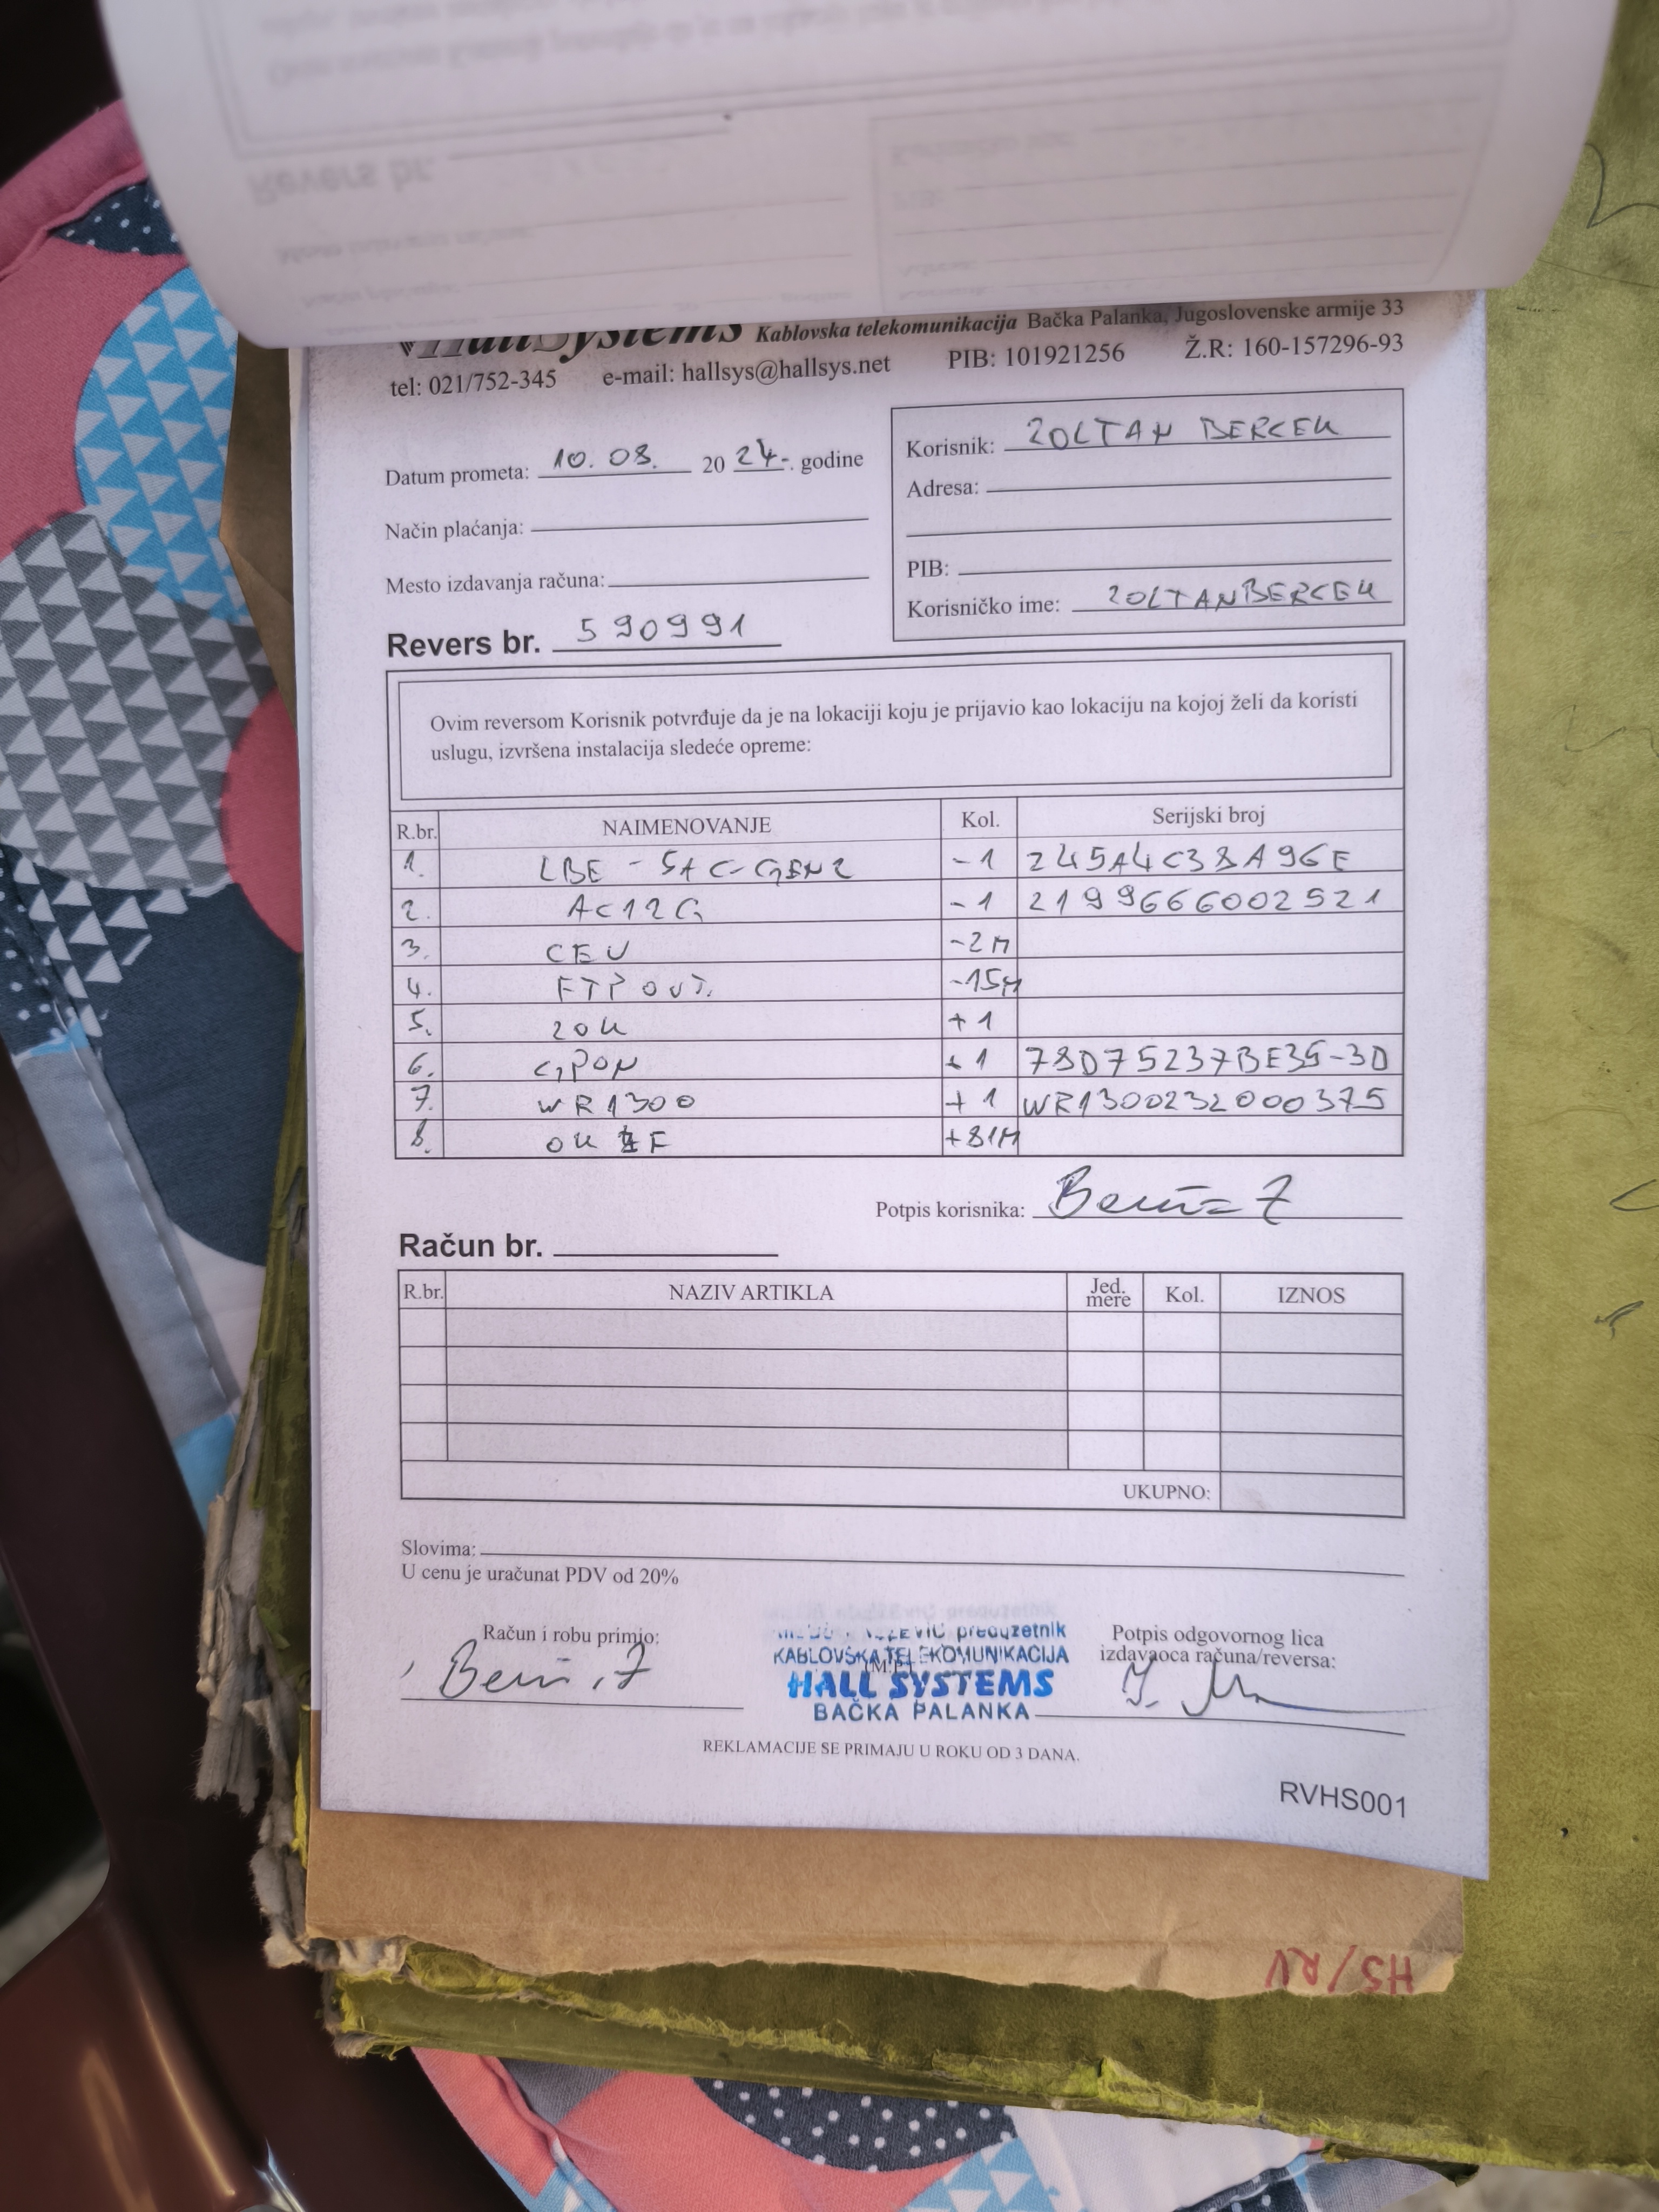 HallSystems Kablovska telekomunikacija Bačka Palanka, Jugoslovenske armije 33
tel: 021/752-345 e-mail: hallsys@hallsys.net PIB: 101921256 Ž.R: 160-157296-93
Datum prometa: 10. 08. 20 24. godine
Način plaćanja:
Mesto izdavanja računa:
Revers br. 590991
Korisnik: ZOLTAN BERCEK
Adresa:
PIB:
Korisničko ime: ZOLTANBERCEK
Ovim reversom Korisnik potvrđuje da je na lokaciji koju je prijavio kao lokaciju na kojoj želi da koristi
uslugu, izvršena instalacija sledeće opreme:
R.br. NAIMENOVANJE Kol. Serijski broj
1. LBE - 5AC-GEN2 -1 245A4C38A96E
2. AC12G -1 2199666002521
3. CEV -2M
4. FTP OUT. -15M
5. ZOK +1
6. GPON +1 78D75237BE35-3D
7. WR1300 +1 WR1300232000375
8. OK F +81M
Potpis korisnika:
Račun br.
R.br. NAZIV ARTIKLA Jed. mere Kol. IZNOS
UKUPNO:
Slovima:
U cenu je uračunat PDV od 20%
Račun i robu primio:
preduzetnik
KABLOVSKA TELEKOMUNIKACIJA
HALL SYSTEMS
BAČKA PALANKA
Potpis odgovornog lica
izdavaoca računa/reversa:
REKLAMACIJE SE PRIMAJU U ROKU OD 3 DANA.
RVHS001
HS/RV